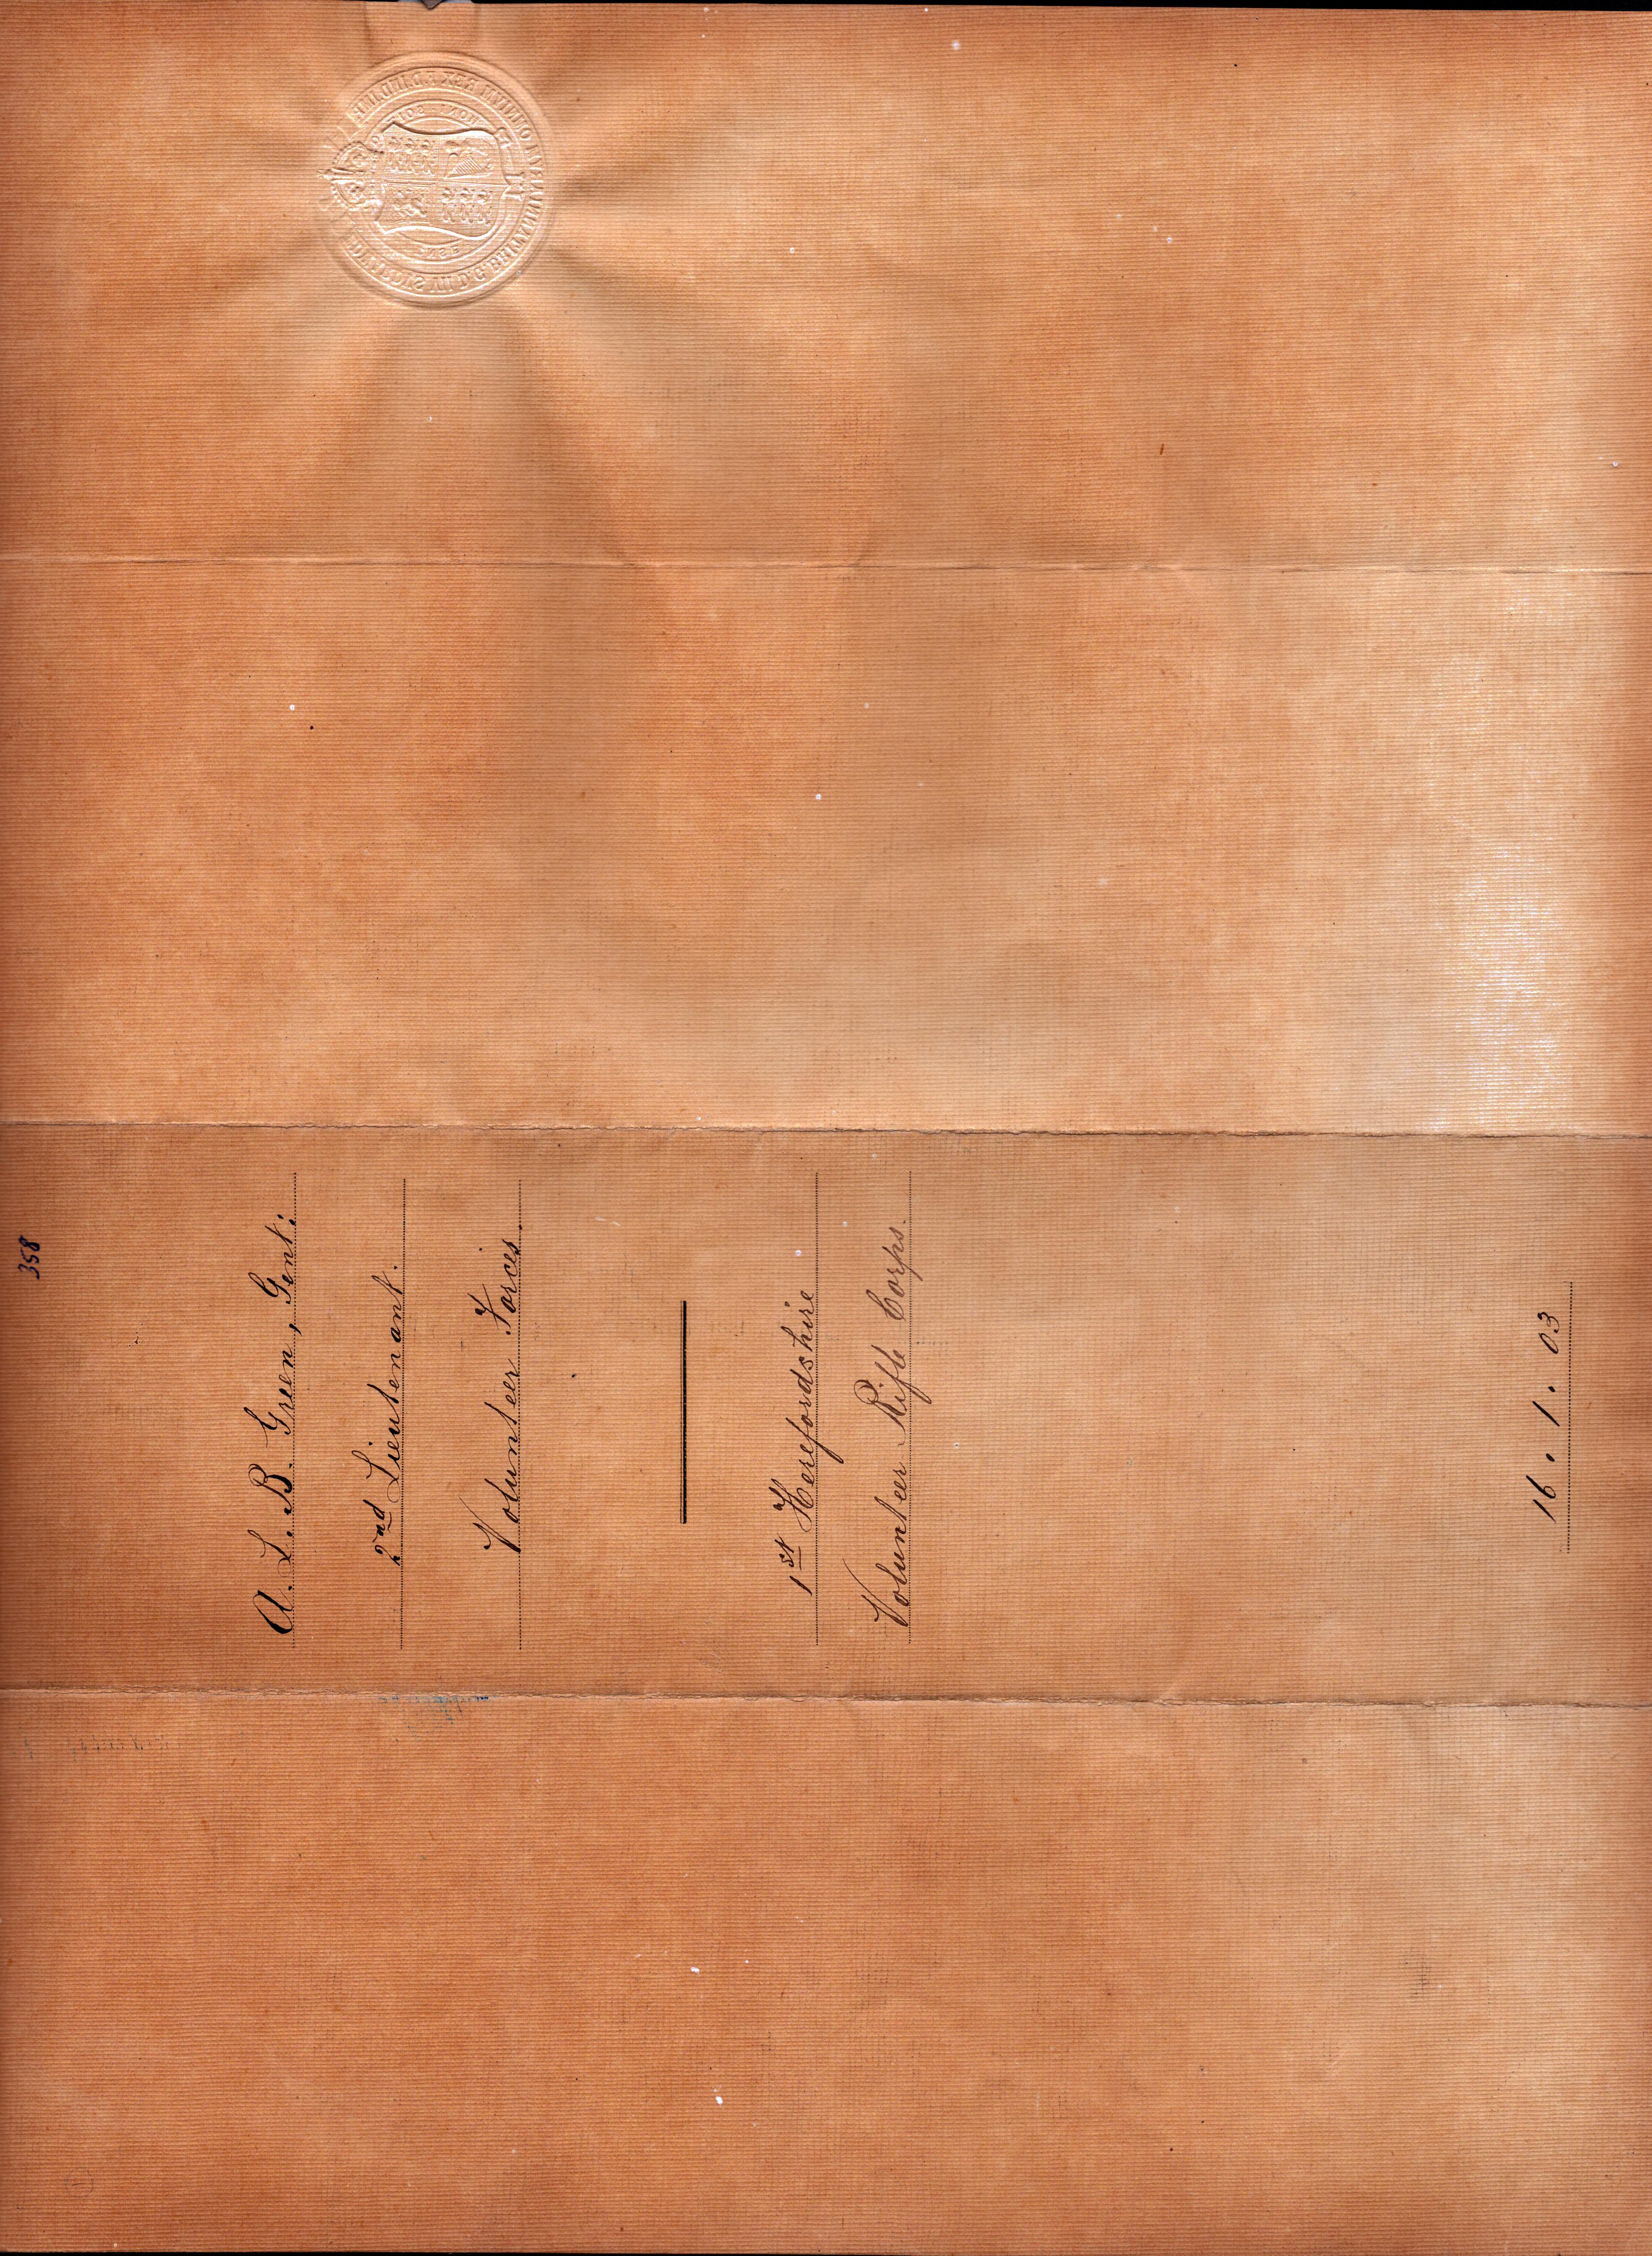 358
A. L. B. Green, Gent:
2nd Lieutenant.
Volunteer Forces.
1st Herefordshire
Volunteer Rifle Corps.
16. 1. 03